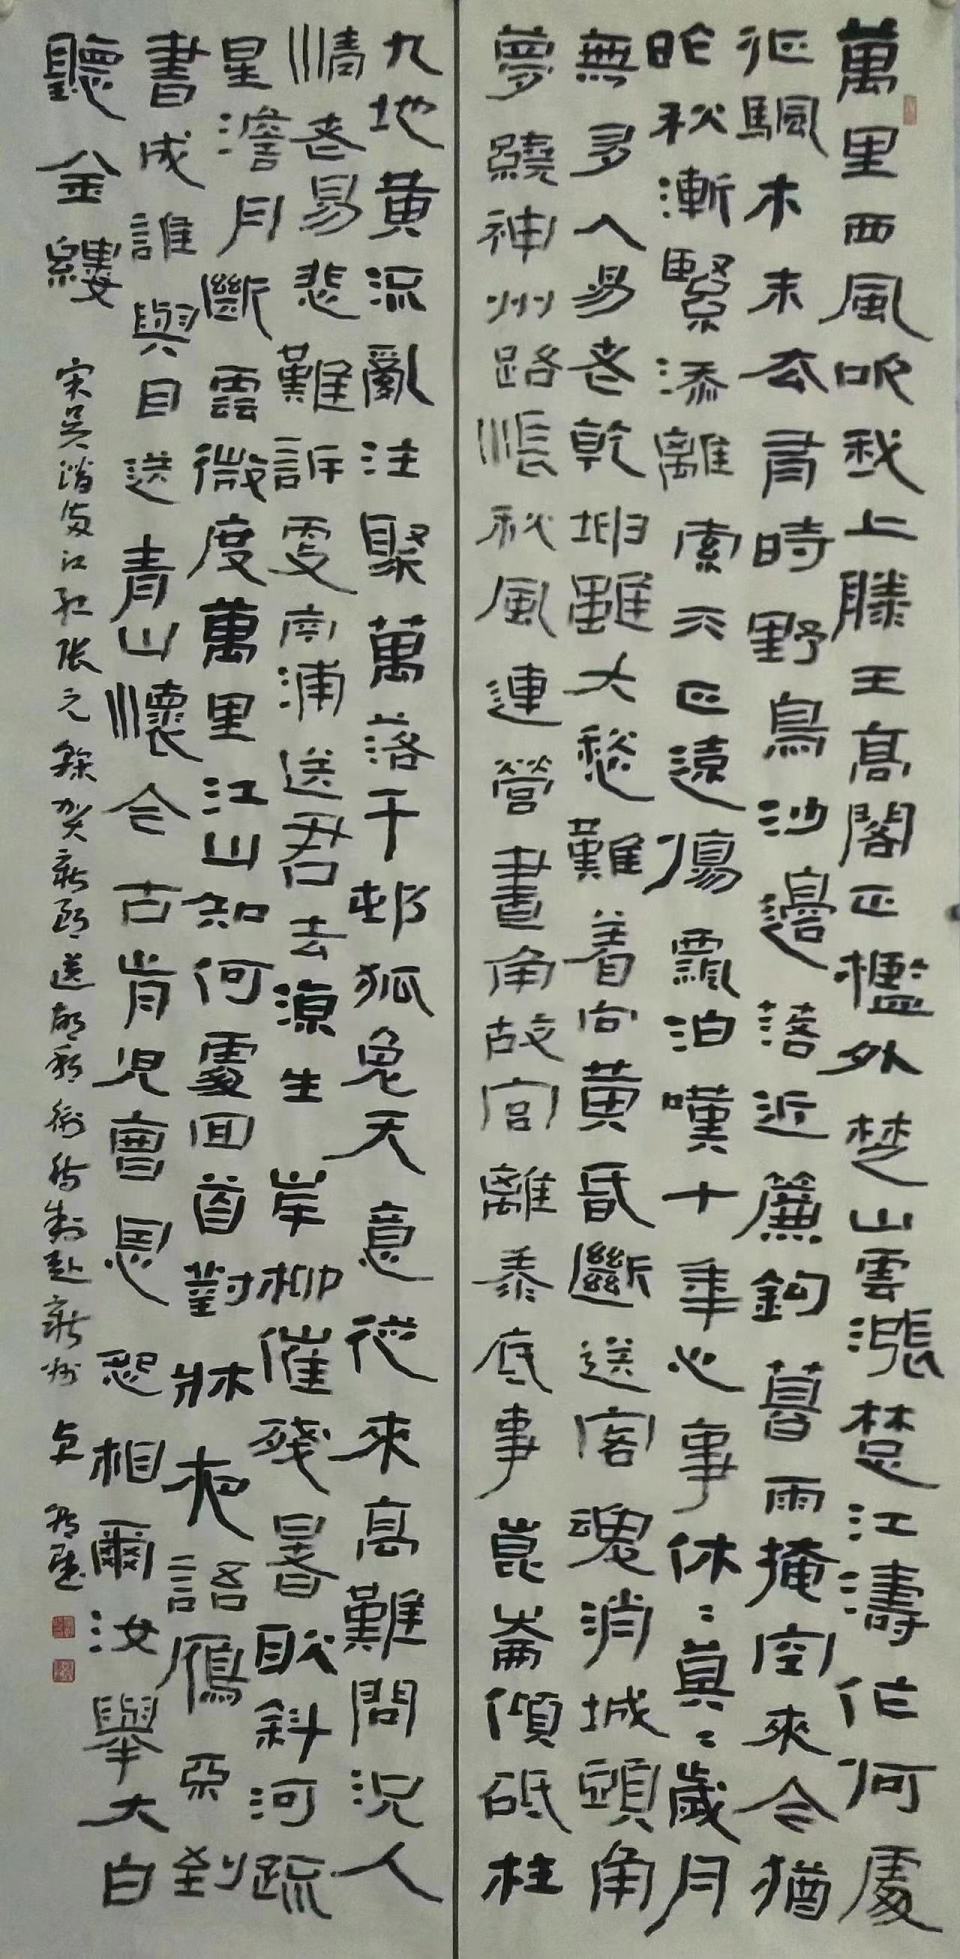 萬里西風吹我上滕王高閣正檻外楚山雲漲楚江濤作何處
征颿木末去有時野鳥沙邊落近簾鉤暮雨掩空來今猶
昨秋漸緊添離索天正遠傷飄泊嘆十年心事休〻莫〻歲月
無多人易老乾坤雖大愁難着向黃昏斷送客魂消城頭角
夢繞神州路悵秋風連營畫角故宮離黍底事崑崙傾砥柱
九地黃流亂注聚萬落千邨狐兔天意從來高難問況人
情老易悲難訴更南浦送君去涼生岸柳催殘暑耿斜河疏
星澹月斷雲微度萬里江山知何處回首對牀夜語雁不到
書成誰與目送青山懷今古肯兒曹恩怨相爾汝舉大白
聽金縷
宋吳潛滿江紅張元幹賀新郎送胡邦衡待制赴新州